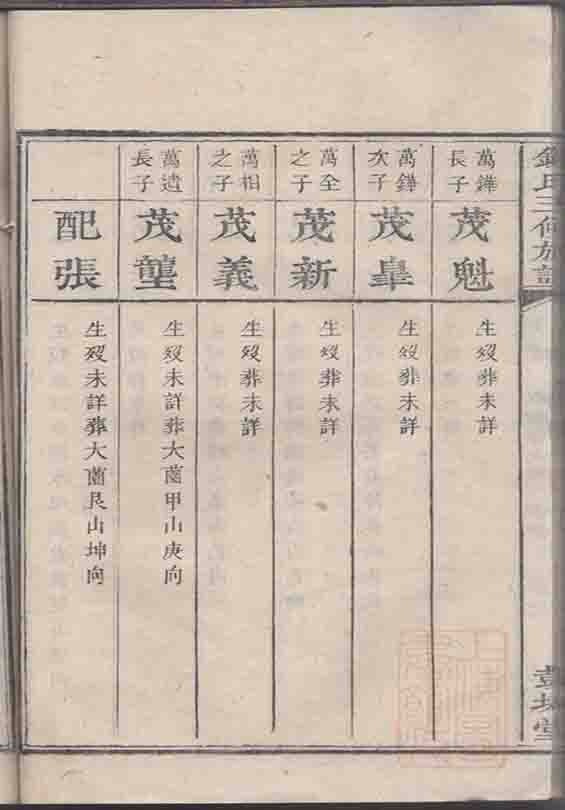 氏三修族譜
萬鏵長子
茂魁
生歿葬未詳
萬鏵次子
茂皐
生歿葬未詳
萬全之子
茂新
生歿葬未詳
萬相之子
茂義
生歿葬未詳
萬遺長子
茂蘁
生歿未詳葬大啚甲山庚向
配張
生歿未詳葬大啚艮山坤向